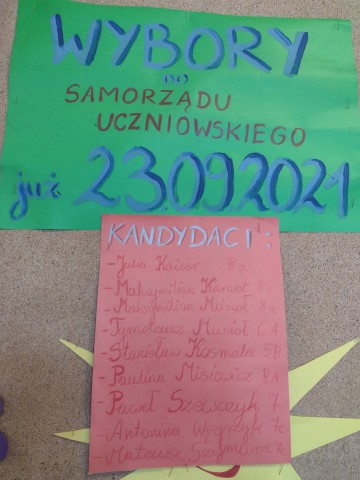 WYBORY
DO
SAMORZĄDU
UCZNIOWSKIEGO
już 23.09.2021
KANDYDACI:
- Julia Kaiser 8a
- Maksymilian 8a
- Maksymilian Musioł 8a
- Tymoteusz Musioł 6A
- Stanisław Kosmala 5B
- Paulina Misiowicz 8A
- Paweł Szewczyk 7
- Antonina Węgrzyk 7c
- Mateusz 7c